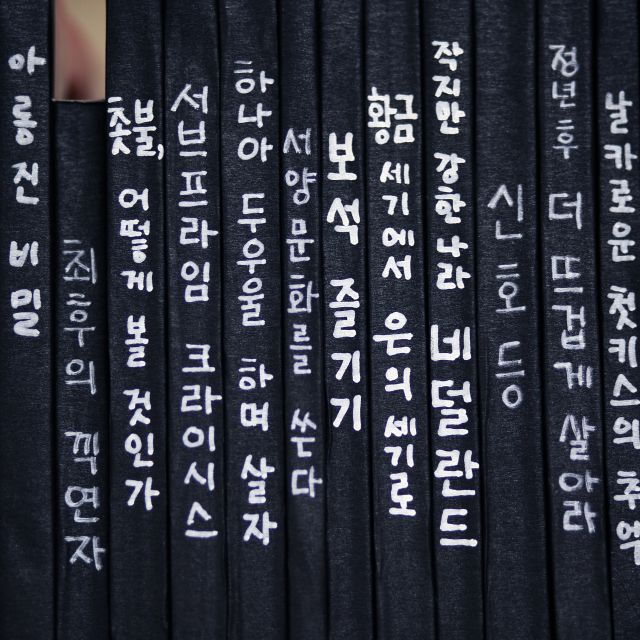 아롱진 비밀
최후의 끽연자
촛불, 어떻게 볼 것인가
서브프라임 크라이시스
하나아 두우울 하며 살자
서양문화를 쏜다
보석 즐기기
황금 세기에서 은의 세기로
작지만 강한 나라 네덜란드
신호등
정년 후 더 뜨겁게 살아라
날카로운 첫키스의 추억